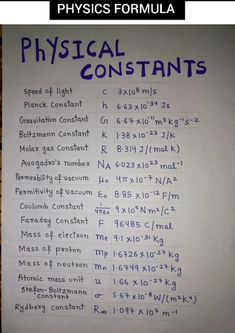 PHYSICS FORMULA
PHYSICAL
CONSTANTS
Speed of light C 3×10⁸ m/s
Planck Constant h 6.63×10⁻³⁴ Js
Gravitation Constant G 6.67×10⁻¹¹ m³ kg⁻¹ s⁻²
Boltzmann Constant K 1.38×10⁻²³ J/K
Molar gas Constant R 8.314 J/(mol K)
Avogadro's number NA 6.023×10²³ mol⁻¹
Permeability of vacuum μ₀ 4π×10⁻⁷ N/A²
Permitivity of vacuum ε₀ 8.85×10⁻¹² F/m
Coulomb Constant 1/4πε₀ 9×10⁹ Nm²/C²
Faraday Constant F 96485 C/mol
Mass of electron me 9.1×10⁻³¹ Kg
Mass of proton mp 1.6726×10⁻²⁷ kg
Mass of neutron mn 1.6749×10⁻²⁷ kg
Atomic mass unit u 1.66×10⁻²⁷ kg
Stefan-Boltzmann Constant σ 5.67×10⁻⁸ W/(m²K⁴)
Rydberg constant R∞ 1.097×10⁷ m⁻¹